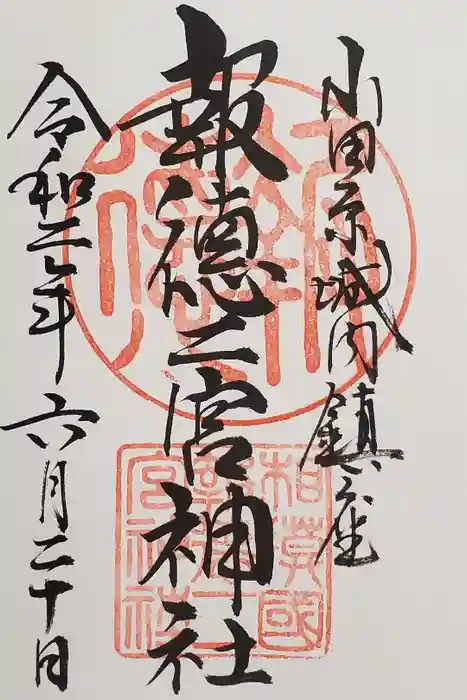 小田原城内鎮座
報徳二宮神社
令和二年六月二十日
相模國報徳二宮神社